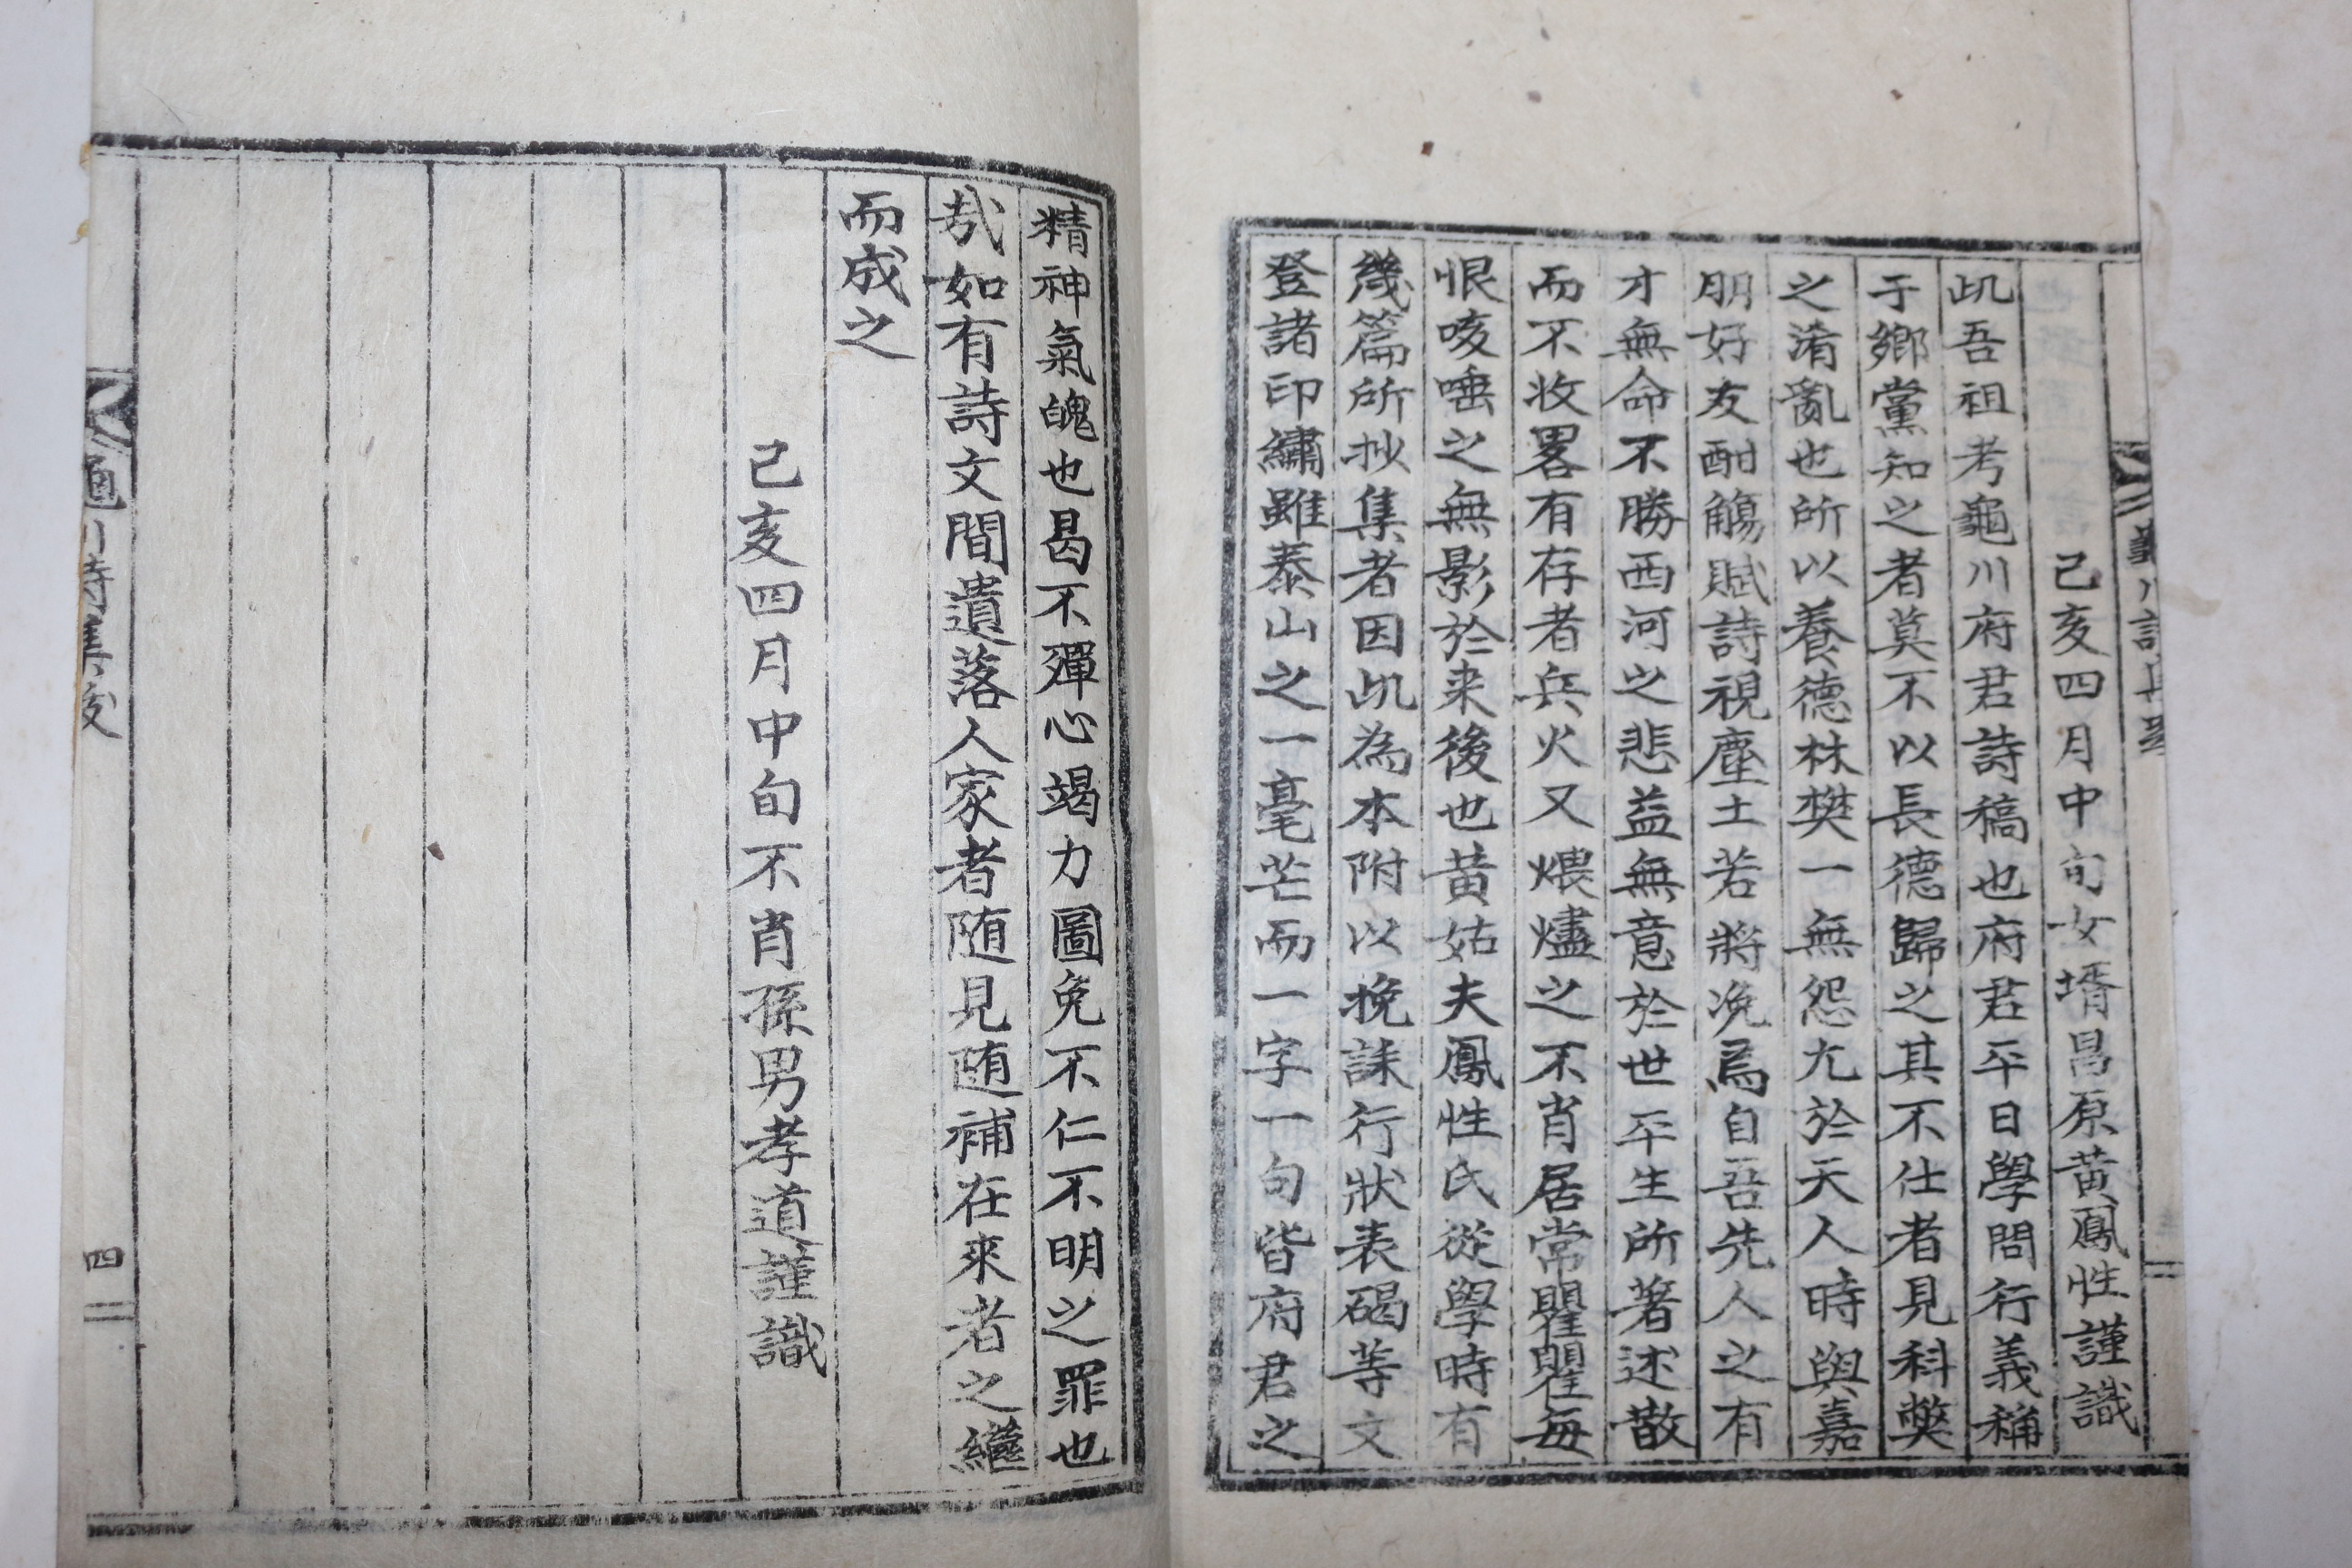 己亥四月中旬女壻昌原黃鳳性謹識
此吾祖考龜川府君詩稿也府君平日學問行義稱
于鄉黨知之者莫不以長德歸之其不仕者見科獘
之淆亂也所以養德林樊一無怨尤於天人時與嘉
朋好友酣觴賦詩視塵土若將凂焉自吾先人之有
才無命不勝西河之悲益無意於世平生所著述散
而不收畧有存者兵火又煨燼之不肖居常瞿瞿每
恨咳唾之無影於来後也黃姑夫鳳性氏從學時有
幾篇所抄集者因此為本附以挽誄行狀表碣等文
登諸印繡雖泰山之一毫芒而一字一句皆府君之
精神氣魄也曷不殫心竭力圖免不仁不明之罪也
㢤如有詩文間遺落人家者随見随補在來者之繼
而成之
己亥四月中旬不肖孫男孝道謹識
川詩集
四